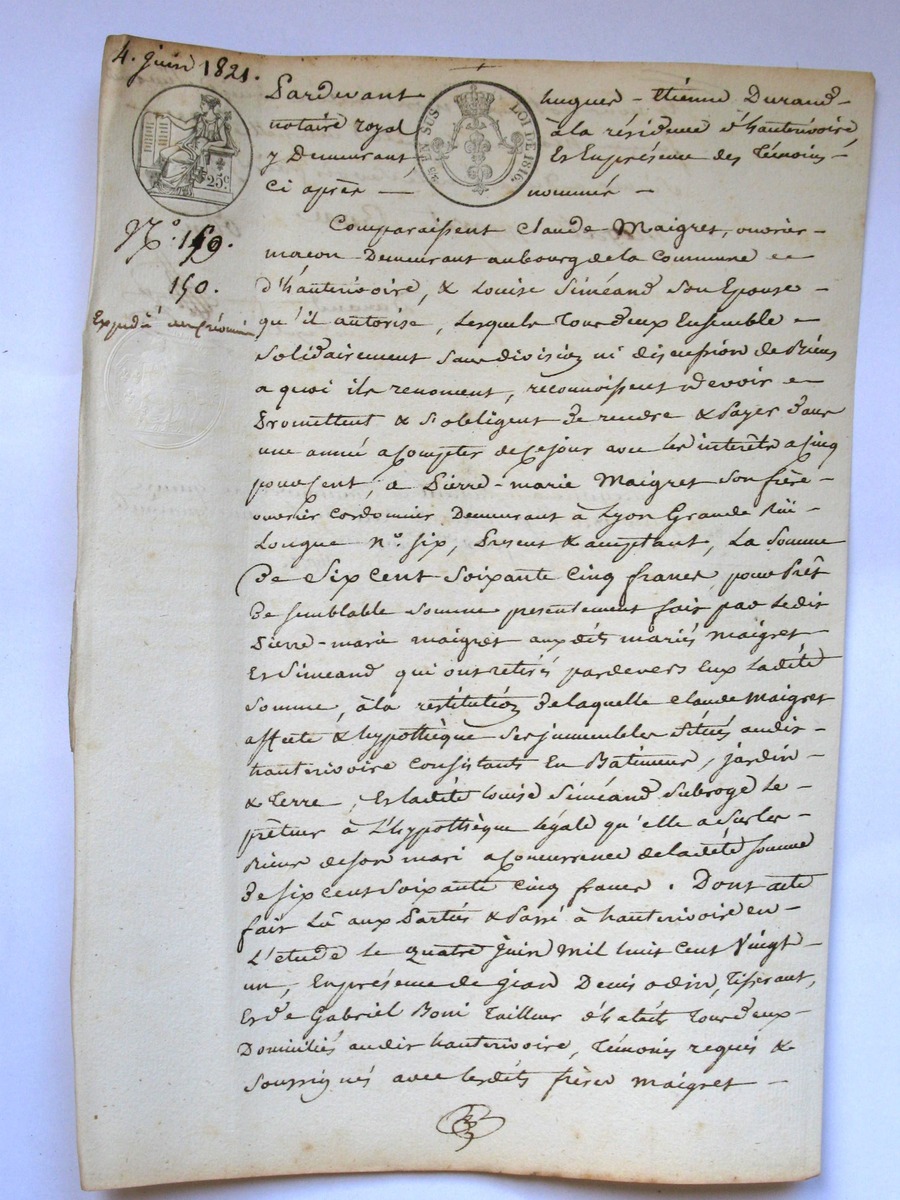 4. juin 1821.
Pardevant hugues - étienne Durand -
notaire royal à la résidence d'hauterivoire,
y Demeurant, Et En présence des Témoins -
Ci après — nommés -
25c.
EN SUS
LOI DE 1816.
N.° 159.
150.
Expédié
Comparaissent Claude Maigret, ouvrier -
macon Demeurant au bourg de la Commune
d'hauterivoire, & Louise Siméand Son Epouse -
qu'il autorise, Lesquels Tous deux Ensemble
Solidairement Sans division ni discussion de Biens
a quoi ils renoncent, reconnoissent devoir
Promettent & S'obligent de rendre & Payer dans
une année a Compter de Ce jour avec les intérêts a Cinq
pour Cent, a Pierre - marie Maigret Son frère -
ouvrier Cordonnier Demeurant à Lyon Grande Rüe -
Longue n.° Six, Present & acceptant, La Somme
De Six Cent Soixante Cinq francs, pour Prêt
De Semblable Somme présentement fait par Ledit
Pierre - marie maigret aux dits mariés maigret
Et Siméand qui ont retirés par devers Eux La dite
Somme, à la restitution de laquelle Claude Maigret
affecte & hypothèque Ses immeubles Situés au dit -
hauterivoire Consistants En Bâtiment, jardin -
& Terre, Et La dite Louise Siméand Subroge Le -
prêteur à L'hypothèque Légale qu'elle a Sur les -
Biens de Son mari a Concurrence de la dite Somme
De Six Cent Soixante Cinq francs. Dont acte
fait Lû aux Parties & Passé à hauterivoire en -
L'etude Le quatre juin Mil huit Cent Vingt -
un, En présence de jean Denis odin, Tisserant,
Et De Gabriel Boni Tailleur d'habits Tous deux -
Domiciliés au dit hauterivoire, Témoins requis &
Soussignés avec lesdits frères maigret -